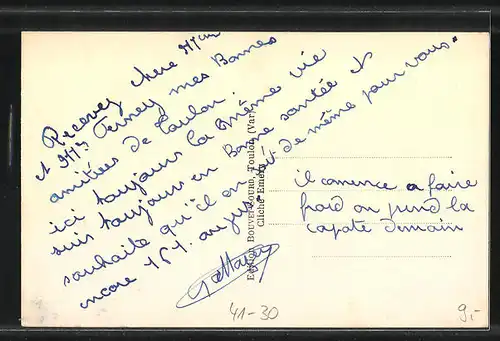 Recevez chere Mme
et Mr Terney mes Bonnes
amitiées de Toulon.
ici toujours la même vie
suis toujours en Bonne santée et
souhaite qu'il en est de même pour vous.
encore 161. au jus
il comence a faire
froid on prend la
capote demain
Editions BOUVET-SOURD, Toulon (Var)
Cliché Emery
41-30
9,-